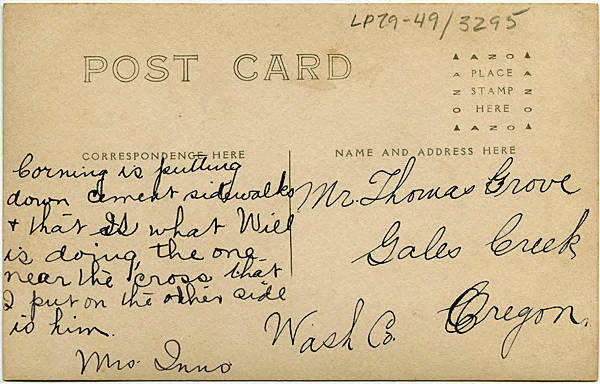 LP79-49/3295
POST CARD
AZO
PLACE
STAMP
HERE
AZO
CORRESPONDENCE HERE
NAME AND ADDRESS HERE
Corning is putting
down cement sidewalks
+ that is what Will
is doing the one
near the cross that
I put on the other side
is him.
Mrs. Inno
Mr. Thomas Grove
Gales Creek
Wash Co. Oregon.